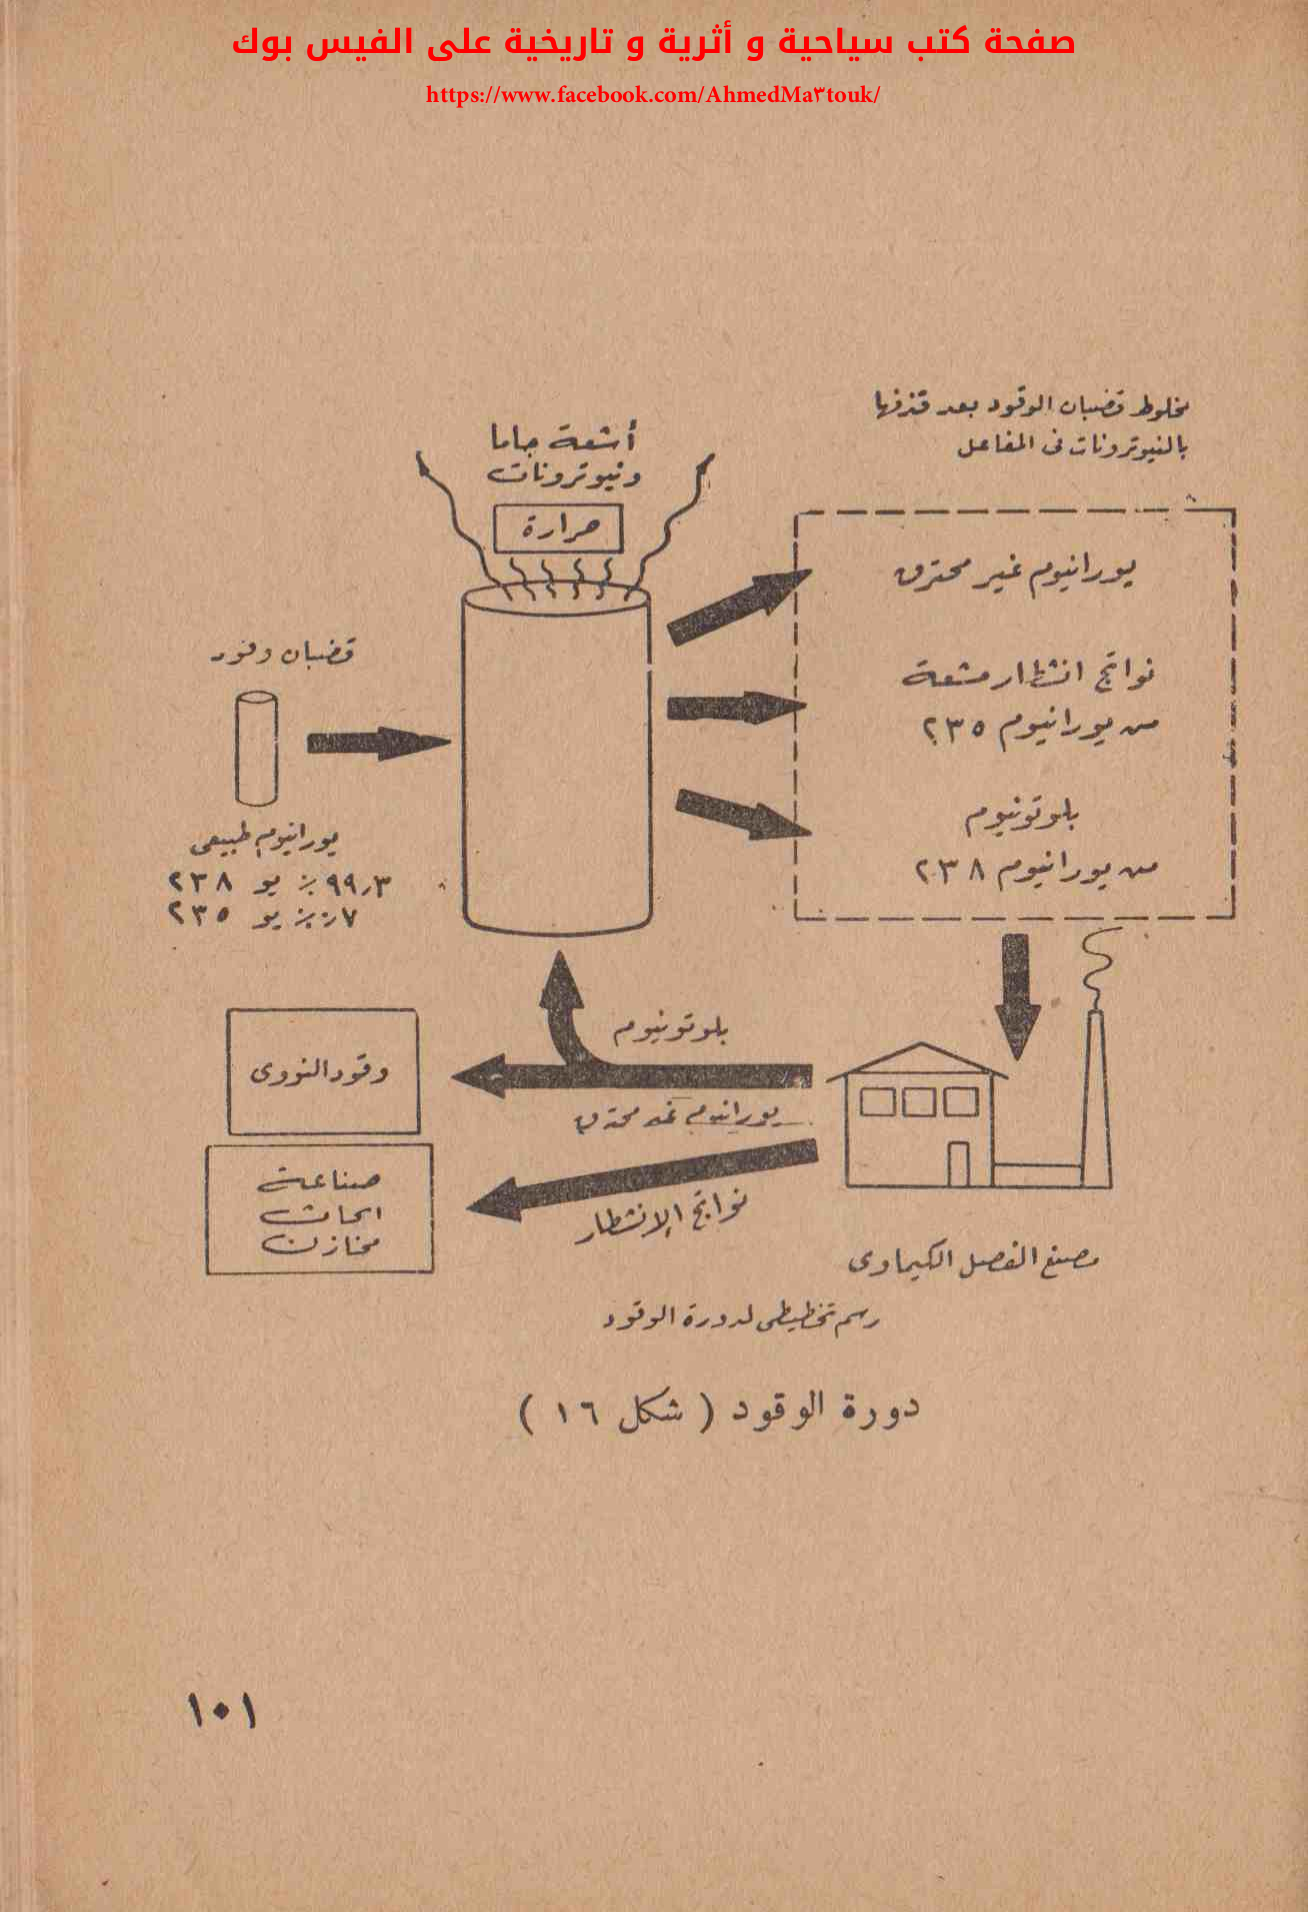 صفحة كتب سياحية و أثرية و تاريخية على الفيس بوك
https://www.facebook.com/AhmedMa٣touk/
مخلوط قضبان الوقود بعد قذفها
بالنيوترونات فى المفاعل
أشعة جاما
ونيوترونات
حرارة
يورانيوم غير محترق
نواتج انشطار مشعة
من يورانيوم ٢٣٥
بلوتونيوم
من يورانيوم ٢٣٨
قضبان وقود
يورانيوم طبيعى
٩٩٫٣ ٪ يو ٢٣٨
٠٫٧ ٪ يو ٢٣٥
بلوتونيوم
يورانيوم غير محترق
نواتج الإنشطار
وقود النووى
صناعة
ابحاث
مخازن
مصنع الفصل الكيماوى
رسم تخطيطى لدورة الوقود
دورة الوقود ( شكل ١٦ )
١٠١